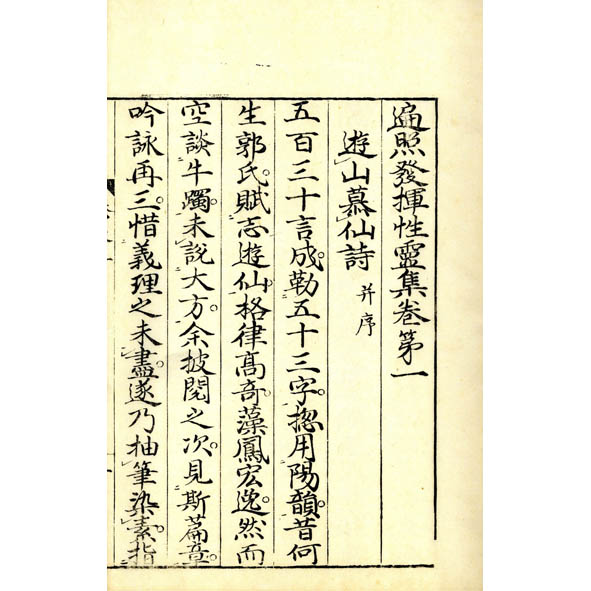 遍照發揮性靈集卷第一
遊山慕仙詩 并序
五百三十言成勒五十三字惣用陽韻昔何
生郭氏賦志遊仙格律高奇藻鳳宏逸然而
空談牛躅未說大方余披閱之次見斯篇章
吟詠再三惜義理之未盡遂乃抽筆染素指